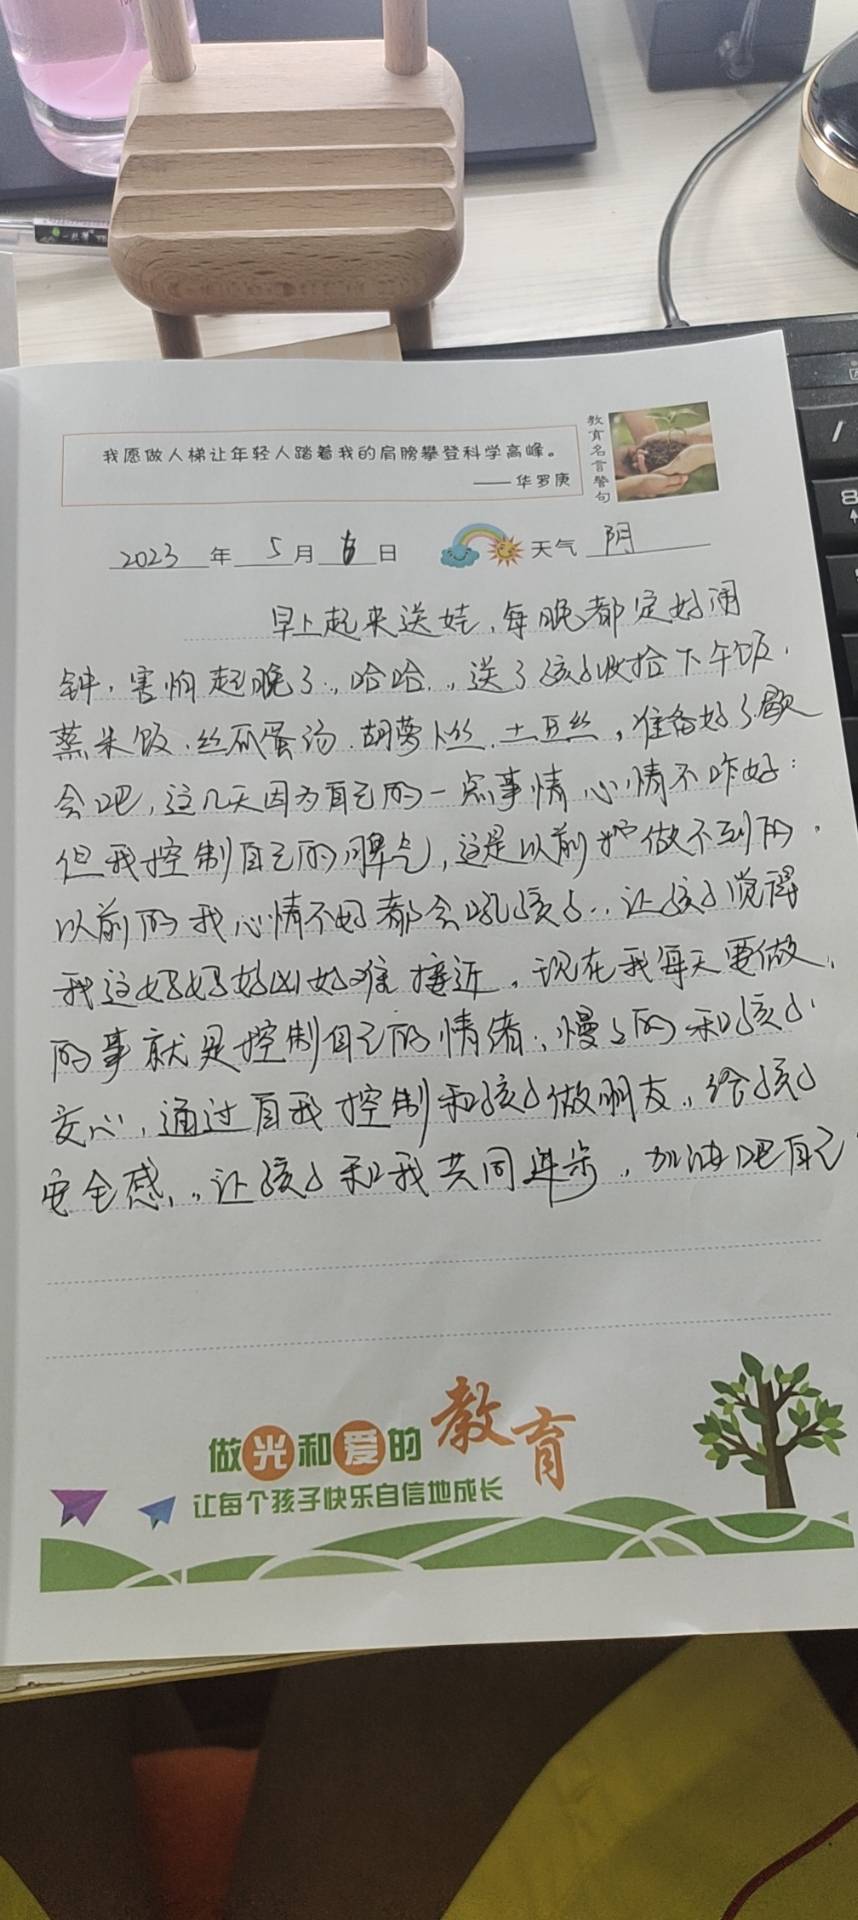 我愿做人梯让年轻人踏着我的肩膀攀登科学高峰。
——华罗庚
教育名言警句
2023年5月6日 天气 阴
早上起来送娃,每晚都定好闹
钟,害怕起晚了,哈哈,送了孩子收拾下午饭,
蒸米饭、丝瓜蛋汤、胡萝卜丝、土豆丝,准备好了歇
会吧,这几天因为自己的一点事情心情不咋好:
但我控制自己的脾气,这是以前做不到的,
以前的我心情不好都会吼孩子,让孩子觉得
我这妈妈好凶好难接近,现在我每天要做
的事就是控制自己的情绪,慢慢的和孩子
交心,通过自我控制和孩子做朋友,给孩子
安全感,让孩子和我共同进步,加油吧自己
做光和爱的教育
让每个孩子快乐自信地成长